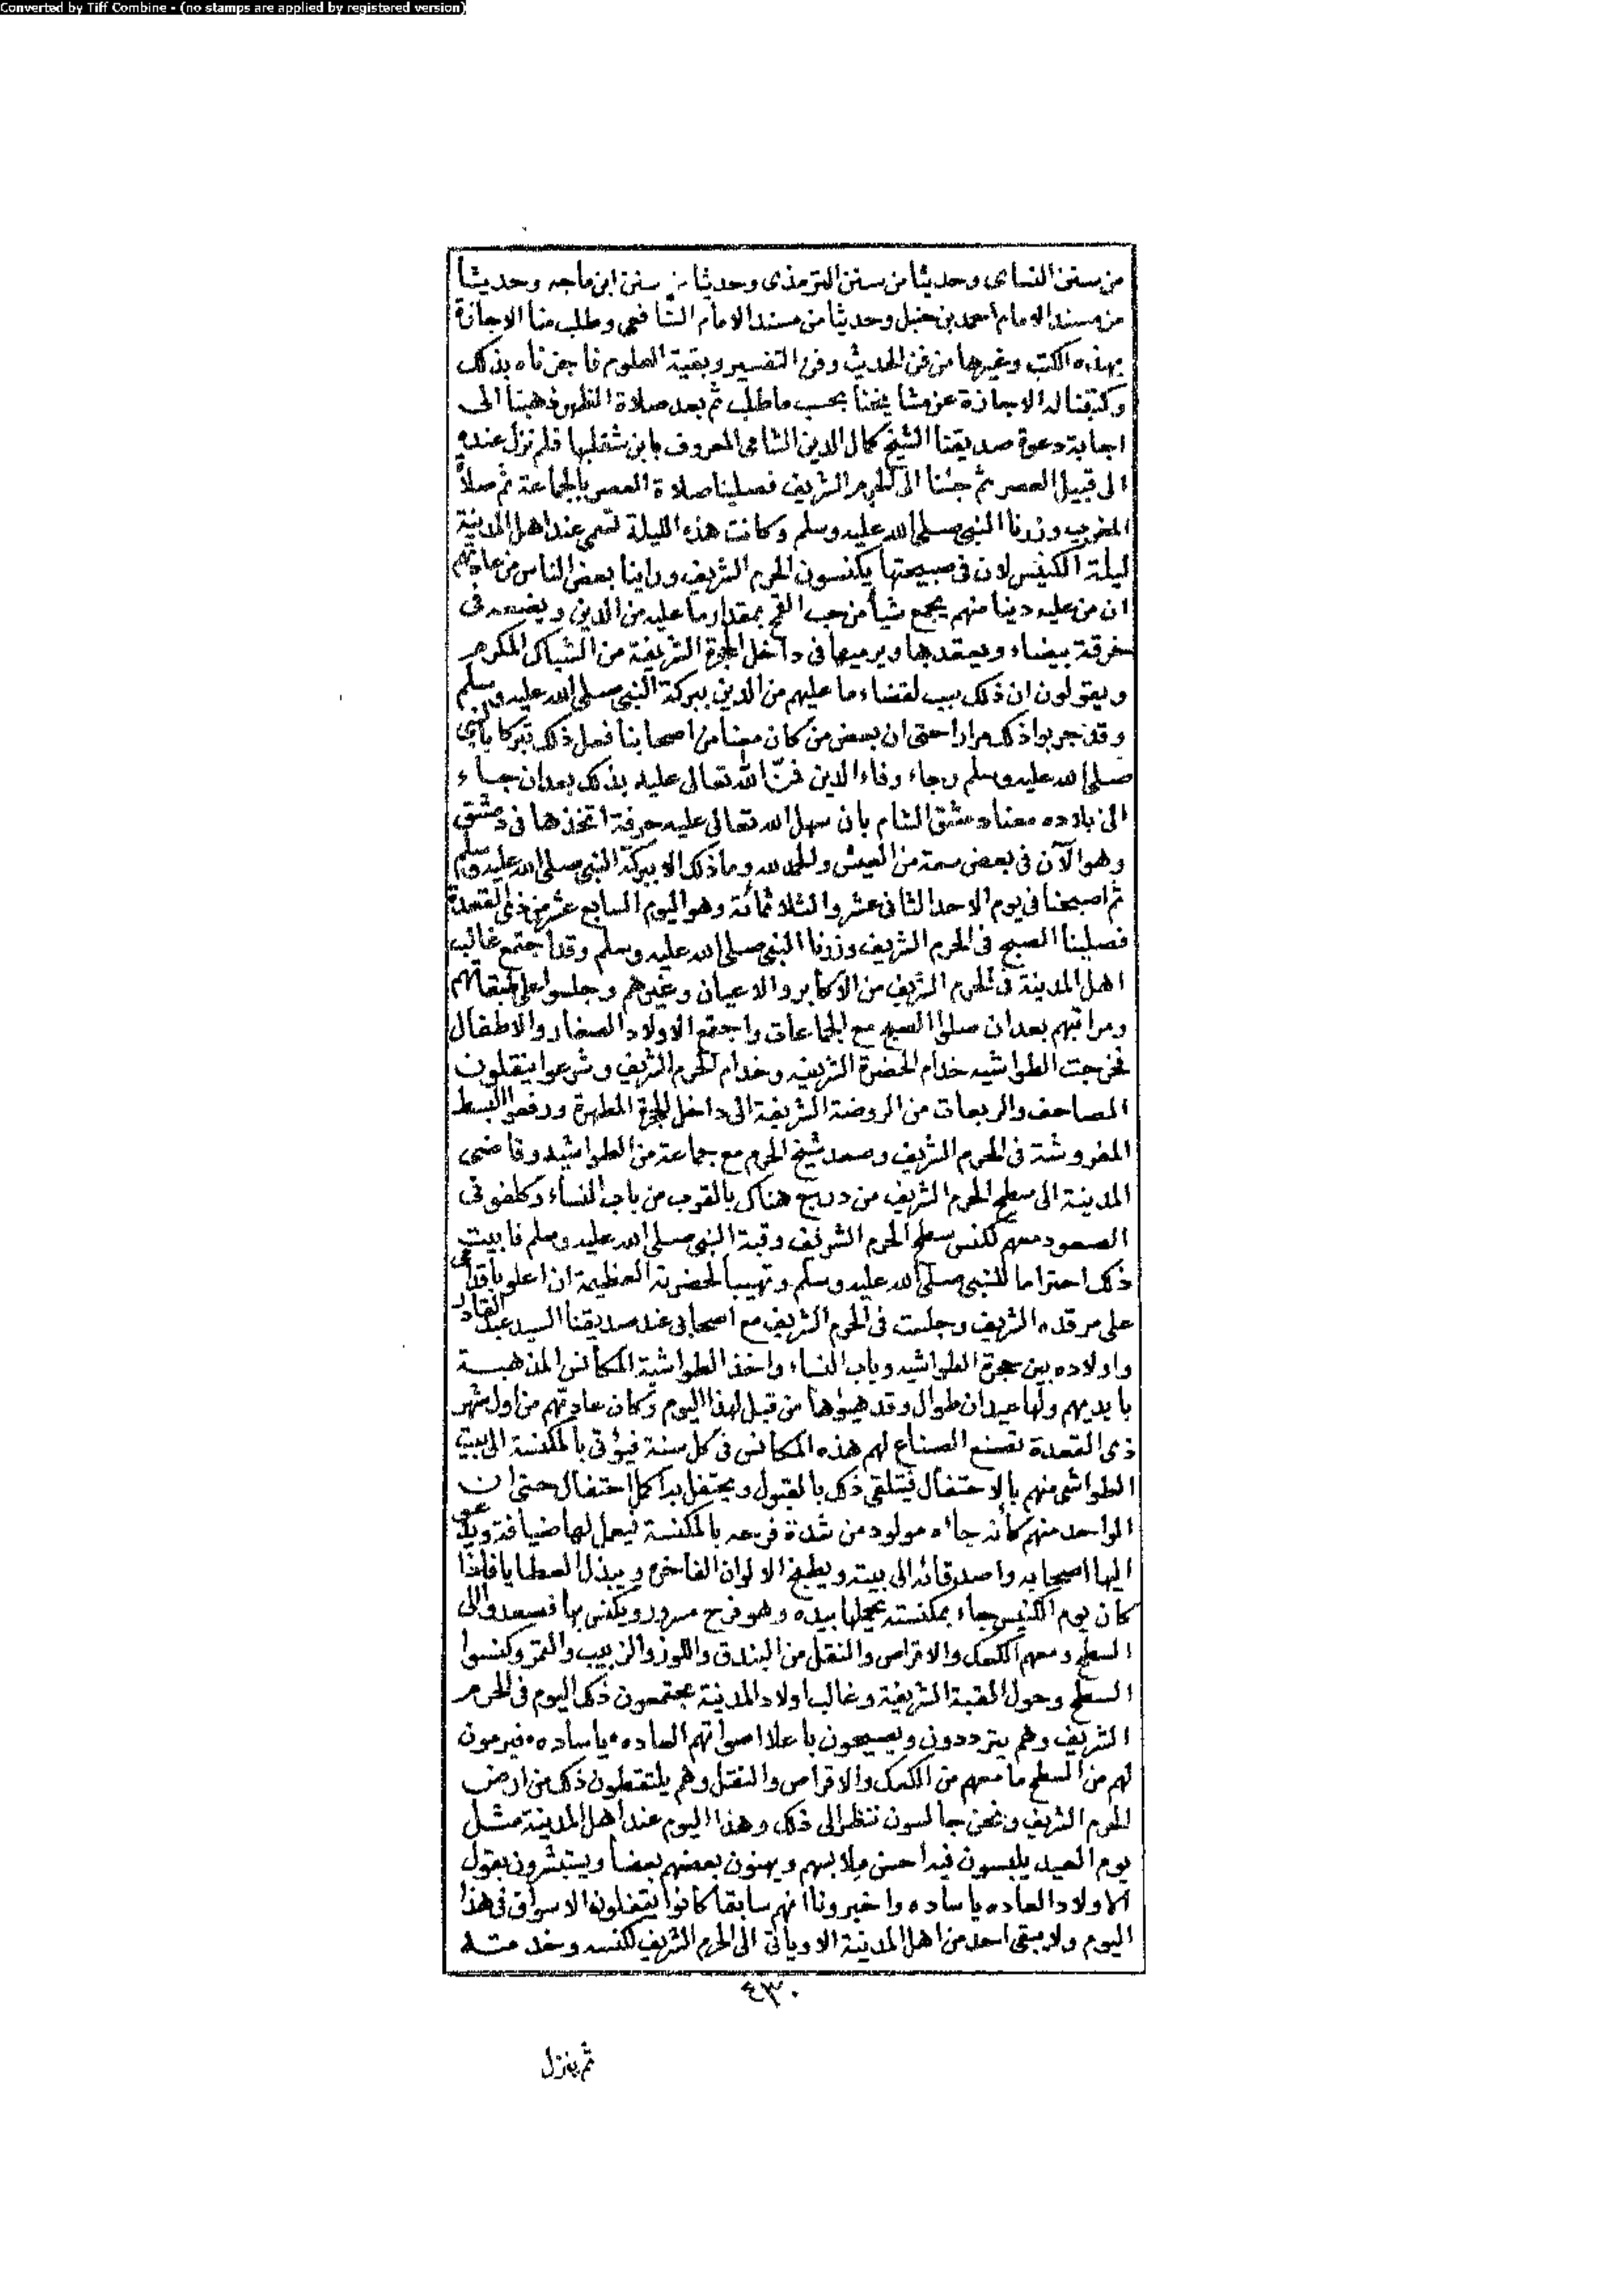 Converted by Tiff Combine - (no stamps are applied by registered version)
من سنن النساى وحديثا من سنن الترمذى وحديثا من سنن ابن ماجه وحديثا
من مسند الامام أحمد بن حنبل وحديثا من مسند الامام الشافعى وطلب منا الاجازة
بهذه الكتب وغيرها من فن الحديث وفن التفسير وبقية العلوم فاجزناه بذلك
وكتبنا له الاجازة عن مشايخنا بحسب ما طلب ثم بعد صلاة الظهر ذهبنا الى
اجابة دعوة صديقنا الشيخ كمال الدين الشامى المعروف بابن شقلبها فلم نزل عنده
الى قبيل العصر ثم جئنا الى الحرم الشريف فصلينا صلاة العصر بالجماعة ثم صلاة
المغرب وزرنا النبى صلى الله عليه وسلم وكانت هذه الليلة تسمى عند اهل المدينة
ليلة الكنيس لان فى صبيحتها يكنسون الحرم الشريف وراينا بعض الناس من عادتهم
ان من عليه دينا منهم يجمع شيأ من حب القمح بمقدار ما عليه من الدين ويضعه فى
خرقة بيضاء ويعقدها ويرميها فى داخل الحجرة الشريفة من الشباك المكرم
ويقولون ان ذلك سبب لقضاء ما عليهم من الدين ببركة النبى صلى الله عليه وسلم
وقد جربوا ذلك مرارا حتى ان بعض من كان معنا من اصحابنا فعل ذلك تبركا بالنبى
صلى الله عليه وسلم رجاء وفاء الدين فمنّ الله تعالى عليه بذلك بعد ان جاء
الى بلاده معنا دمشق الشام بان سهل الله تعالى عليه حرفة اتخذها فى دمشق
وهو الآن فى بعض سعة من العيش والحمد لله وما ذلك الا ببركة النبى صلى الله عليه وسلم
ثم اصبحنا فى يوم الاحد الثانى عشر والثلاثمائة وهو اليوم السابع عشر من ذى القعدة
فصلينا الصبح فى الحرم الشريف وزرنا النبى صلى الله عليه وسلم وقد اجتمع غالب
اهل المدينة فى الحرم الشريف من الاكابر والاعيان وغيرهم وجلسوا على طبقاتهم
ومراتبهم بعد ان صلوا الصبح مع الجماعات واجتمع الاولاد الصغار والاطفال
فخرجت الطواشيه خدام الحضرة الشريفه وخدام الحرم الشريف وشرعوا ينقلون
المصاحف والربعات من الروضة الشريفة الى داخل الحجرة المطهرة ورفعوا البسط
المفروشة فى الحرم الشريف وصعد شيخ الحرم مع جماعة من الطواشيه وقاضى
المدينة الى سطح الحرم الشريف من دريج هناك بالقرب من باب النساء وكلفونى
الصعود معهم لكنس سطح الحرم الشريف وقبة النبى صلى الله عليه وسلم فابيت
ذلك احتراما للنبى صلى الله عليه وسلم وتهيبا لحضرته العظيمة ان اعلو باقدامى
على مرقده الشريف وجلست فى الحرم الشريف مع اصحابى عند صديقنا السيد عبد القادر
واولاده بين حجرة الطواشيه وباب النساء واخذ الطواشية المكانس المذهبة
بايديهم ولها عيدان طوال وقد هيؤها من قبل لهذا اليوم وكان عادتهم من اول شهر
ذى القعدة تصنع الصناع لهم هذه المكانس فى كل سنة فيؤتى بالمكنسة الى بيت
الطواشى منهم بالاحتفال فيتلقى ذلك بالقبول ويحتفل به اكمل احتفال حتى ان
الواحد منهم كأنه جاءه مولود من شدة فرحه بالمكنسة فيعمل لها ضيافة ويدعو
اليها اصحابه واصدقائه الى بيته ويطبخ الالوان الفاخره ويبذل العطايا فاذا
كان يوم الكنيس جاء بمكنسته يحملها بيده وهو فرح مسرور ويكنس بها فصعدوا الى
السطح ومعهم الكعك والاقراص والنقل من البندق واللوز والزبيب والتمر وكنسوا
السطح وحول القبة الشريفة وغالب اولاد المدينة يجتمعون ذلك اليوم فى الحرم
الشريف وهم يترددون ويصيحون باعلا اصواتهم العاده ٠ يا ساده ٠ فيرمون
لهم من السطح ما معهم من الكعك والاقراص والنقل وهم يلتقطون ذلك من ارض
الحرم الشريف ونحن جالسون ننظر الى ذلك وهذا اليوم عند اهل المدينة مثل
يوم العيد يلبسون فيه احسن ملابسهم ويهنون بعضهم بعضا ويستبشرون بقول
الاولاد العاده يا ساده واخبرونا انهم سابقا كانوا يقفلون الاسواق فى هذا
اليوم ولا يبقى احد من اهل المدينة الا وياتى الى الحرم الشريف لكنسه وخدمته
٤٣٠
ثم ينزل